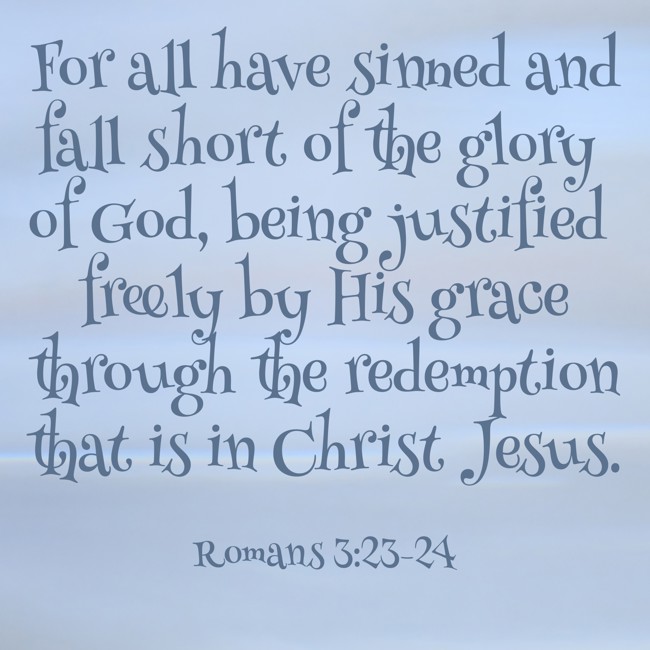 For all have sinned and
fall short of the glory
of God, being justified
freely by His grace
through the redemption
that is in Christ Jesus.
Romans 3:23-24